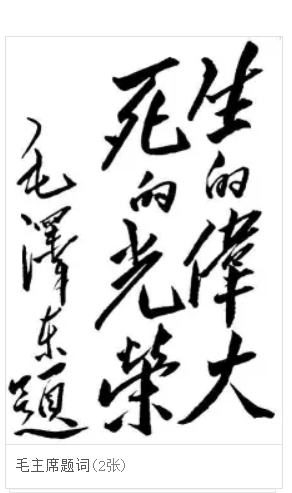 生的偉大
死的光榮
毛澤东題
毛主席题词(2张)